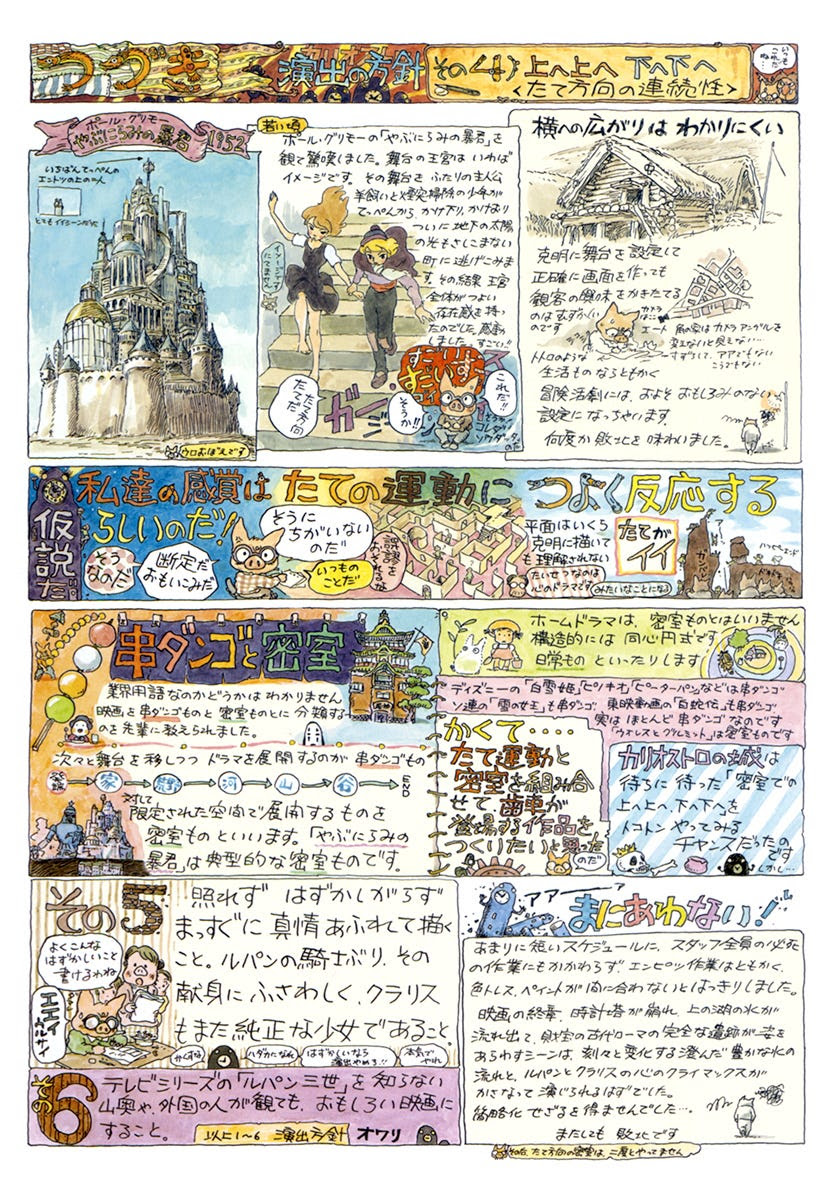 つづき 演出の方針 その4 上へ上へ 下へ下へ
<たて方向の連続性>
いつも
これだ
ね…
ポール・グリモー
やぶにらみの暴君 1952
いちばんてっぺんの
エントツの上の二人
とてもイイシーンだった
ウロおぼえです
若い頃
ポール・グリモーの「やぶにらみの暴君」を
観て驚嘆しました。舞台の王宮は いわば
イメージです。その舞台を ふたりの主人公
羊飼いと煙突掃除の少年が
てっぺんから かけ下り、かけおり
ついに地下の太陽
の光もさしこまない
町に逃げこみま
す。その結果 王宮
全体がつよい
存在感を持っ
たのでした。感動
しました。すごい!!
イメージです
にてません
たて方向
たてだ
ガーン
すごいすごい
これだ!!
そうか!!
横への広がりは わかりにくい
克明に舞台を設定して
正確に画面を作っても
観客の興味をかきたてる
のはむずかしい
のです
トトロのような
生活ものならともかく
冒険活劇には、およそ おもしろみのない
設定になっちゃいます。
何度か 敗北を味わいました。
仮説だ
私達の感覚は たての運動に つよく反応する
らしいのだ!
そう
なのだ
断定だ
おもいこみだ
そうに
ちがいない
のだ
いつもの
ことだ
平面はいくら
克明に描いて
も理解されない
たてが
イイ
たいせつなのは
心のドラマです
みたいなことになる
串ダンゴと密室
業界用語なのかどうかは わかりません
映画を串ダンゴものと密室ものとに分類する
のを先輩に教えられました。
次々と舞台を移しつつ ドラマを展開するのが 串ダンゴもの
家 河 山 谷
対して
限定された空間で展開するものを
密室ものといいます。「やぶにらみの
暴君」は典型的な密室ものです。
ホームドラマは、密室ものとはいいません
構造的には 同心円式です
日常もの といったりします
ディズニーの「白雪姫」「ピノキオ」「ピーターパン」などは串ダンゴ
ソ連の「雪の女王」も串ダンゴ 東映動画の「白蛇伝」も串ダンゴ
実は ほとんど串ダンゴ なのです
「ウォレスとグルミット」は密室ものです
かくて・・・・
たて運動と
密室を組み合
せて 歯車が
登場する作品を
つくりたいと思った
のだ
カリオストロの城は
待ちに待った「密室での
上へ上へ、下へ下へ」を
トコトン やってみる
チャンスだったの
です
しかし…
その5
照れず はずかしがらず
まっすぐに 真情あふれて描く
こと。ルパンの騎士ぶり、その
献身に ふさわしく、クラリス
もまた純正な少女であること。
よくこんな
はずかしいこと
書けるわね
エエイ
ウルサイ
かくすな
ハダカになれ
はずかしいなら
演出やめろ!!
本気で
やれ
その6
テレビシリーズの「ルパン三世」を知らない
山奥や、外国の人が観ても、おもしろい映画に
すること。
以上1〜6 演出方針 オワリ
アアーーァ
まにあわない!
あまりに短いスケジュールに、スタッフ全員の必死
の作業にもかかわらず、エンピツ作業はともかく、
色トレス、ペイントが間に合わないとはっきりしました。
映画の終章、時計塔が崩れ、上の湖の水が
流れ出て、財宝の古代ローマの完全な遺跡が姿を
あらわすシーンは、刻々と変化する澄んだ豊かな水の
流れと、ルパンとクラリスの心のクライマックスが
かさなって 演じられるはずでした。
簡略化せざるを得ませんでした…。
またしても 敗北です
その后、たて方向の密室は、二度とやってません